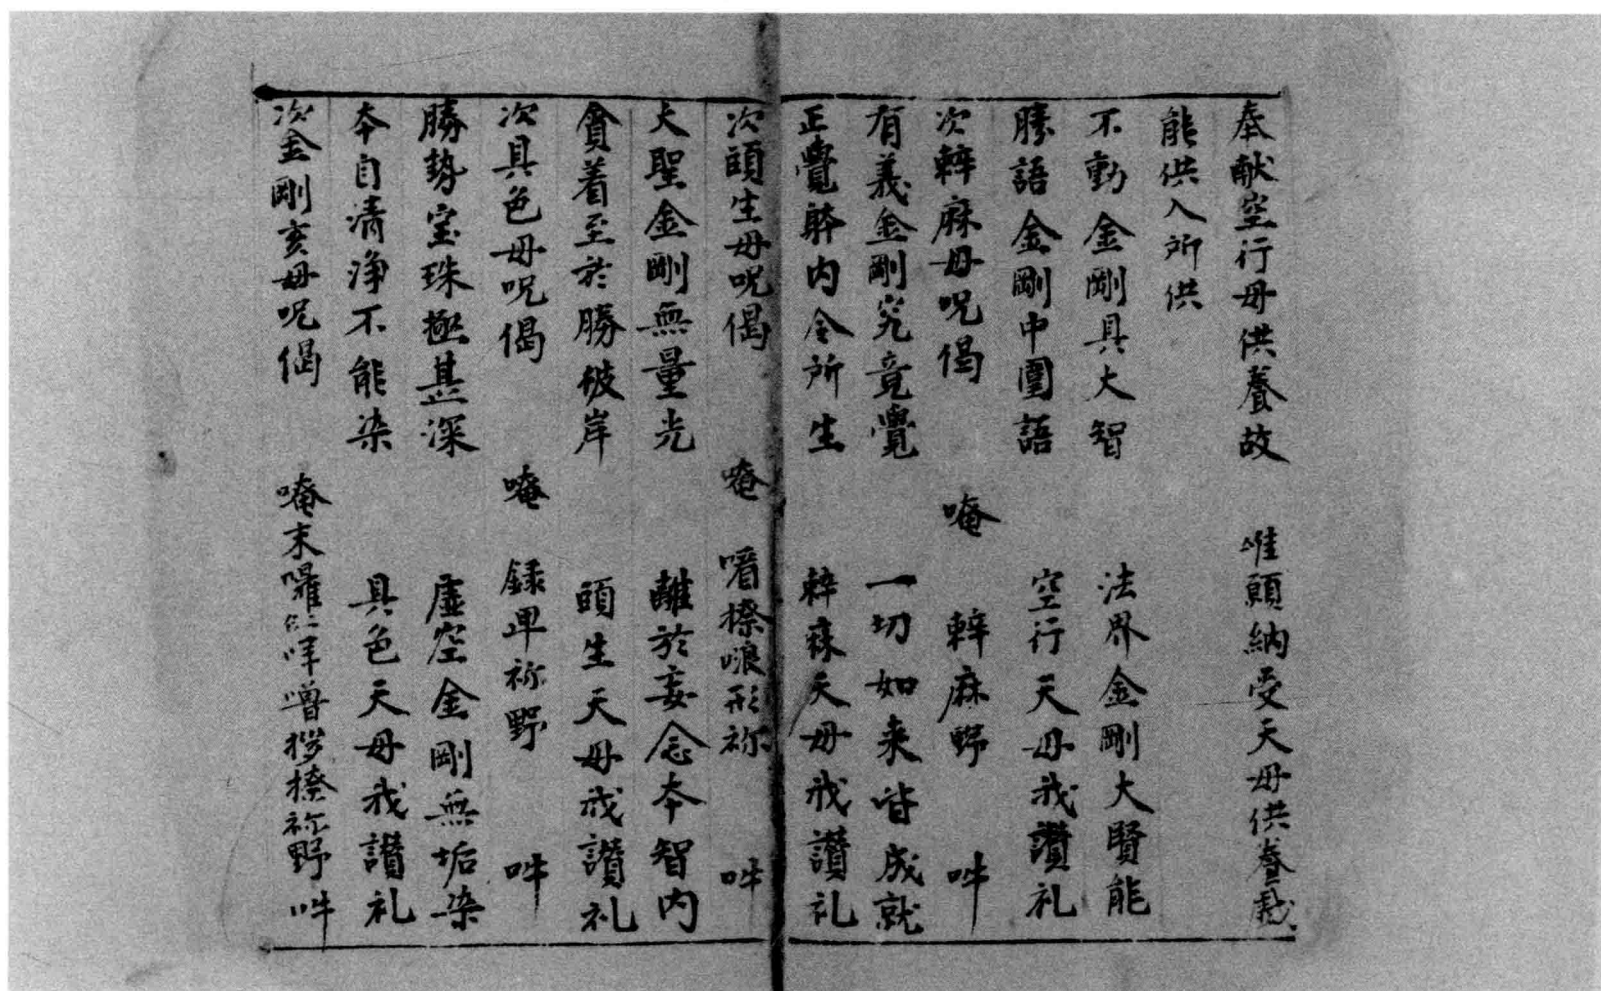 奉献空行母供養故　唯願納受天母供養
能供入所供
不動金剛具大智　法界金剛大賢能
勝語金剛中圍語　空行天母我讃礼
次辢麻母呪偈　唵　辢麻野　吽
有義金剛究竟覺　一切如来皆成就
正覺躰内令所生　辢麻天母我讃礼
次頭生母呪偈　唵　㗖捺哏形祢　吽
大聖金剛無量光　離於妄念本智内
貪着至於勝彼岸　頭生天母我讃礼
次具色母呪偈　唵　錄卑祢野　吽
勝勢宝珠極甚深　虚空金剛無垢染
本自清浄不能染　具色天母我讃礼
次金剛亥母呪偈　唵末囉咩噜捺祢野吽